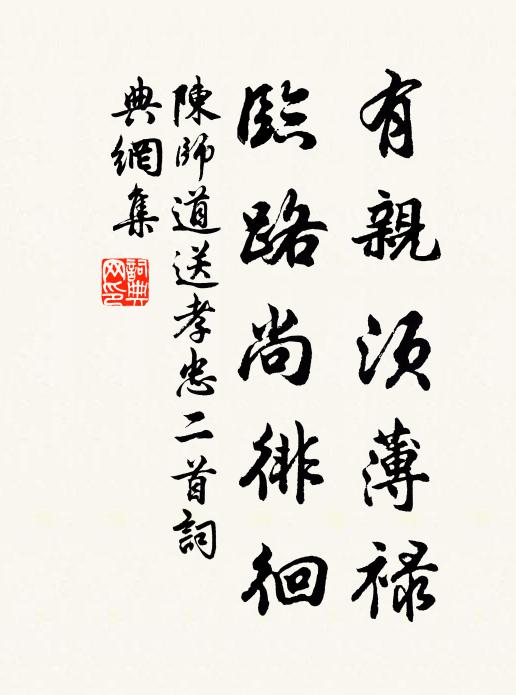 有親須薄祿
臨路尚徘徊
陳師道送孝忠二首詞
典網集
詞典網印